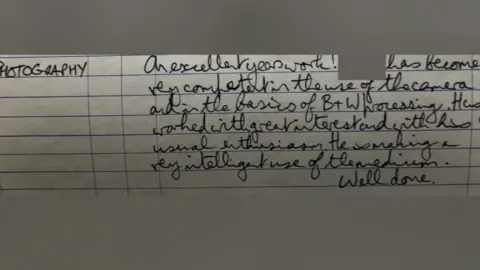 PHOTOGRAPHY An excellent years work! has become
very competent in the use of the camera
and in the basics of B+W processing. He has
worked with great interest and with his
usual enthusiasm. He is making a
very intelligent use of the medium.
Well done.